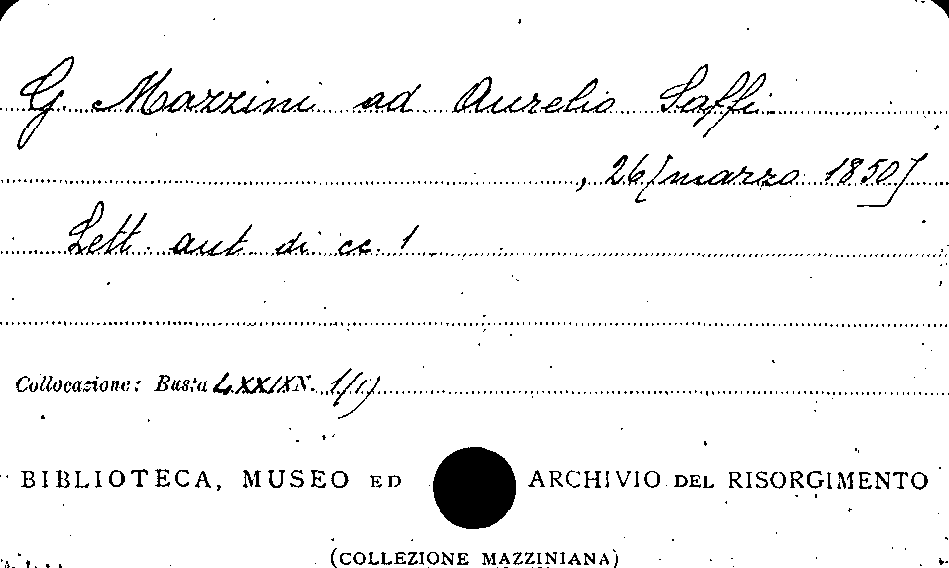 G. Mazzini ad Aurelio Saffi.
, 26 [marzo 1850]
Lett. aut. di cc. 1
Collocazione: Busta LXXIX N. 1/(1)
BIBLIOTECA, MUSEO ED ARCHIVIO DEL RISORGIMENTO
(COLLEZIONE MAZZINIANA)